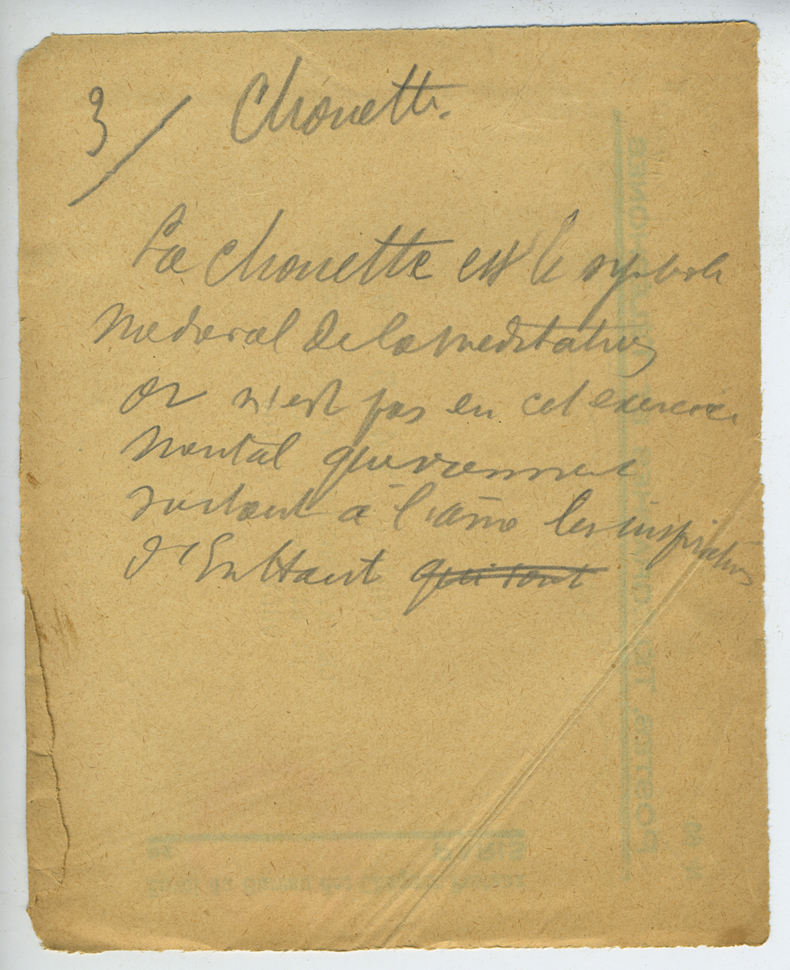 3/ Chouette.
La chouette est le symbole
Medieval de la meditation
or n'est pas en cet exercice
mental que viennent
surtout à l'âme les inspirations
d'En Haut qui sont
POSTES, TÉL